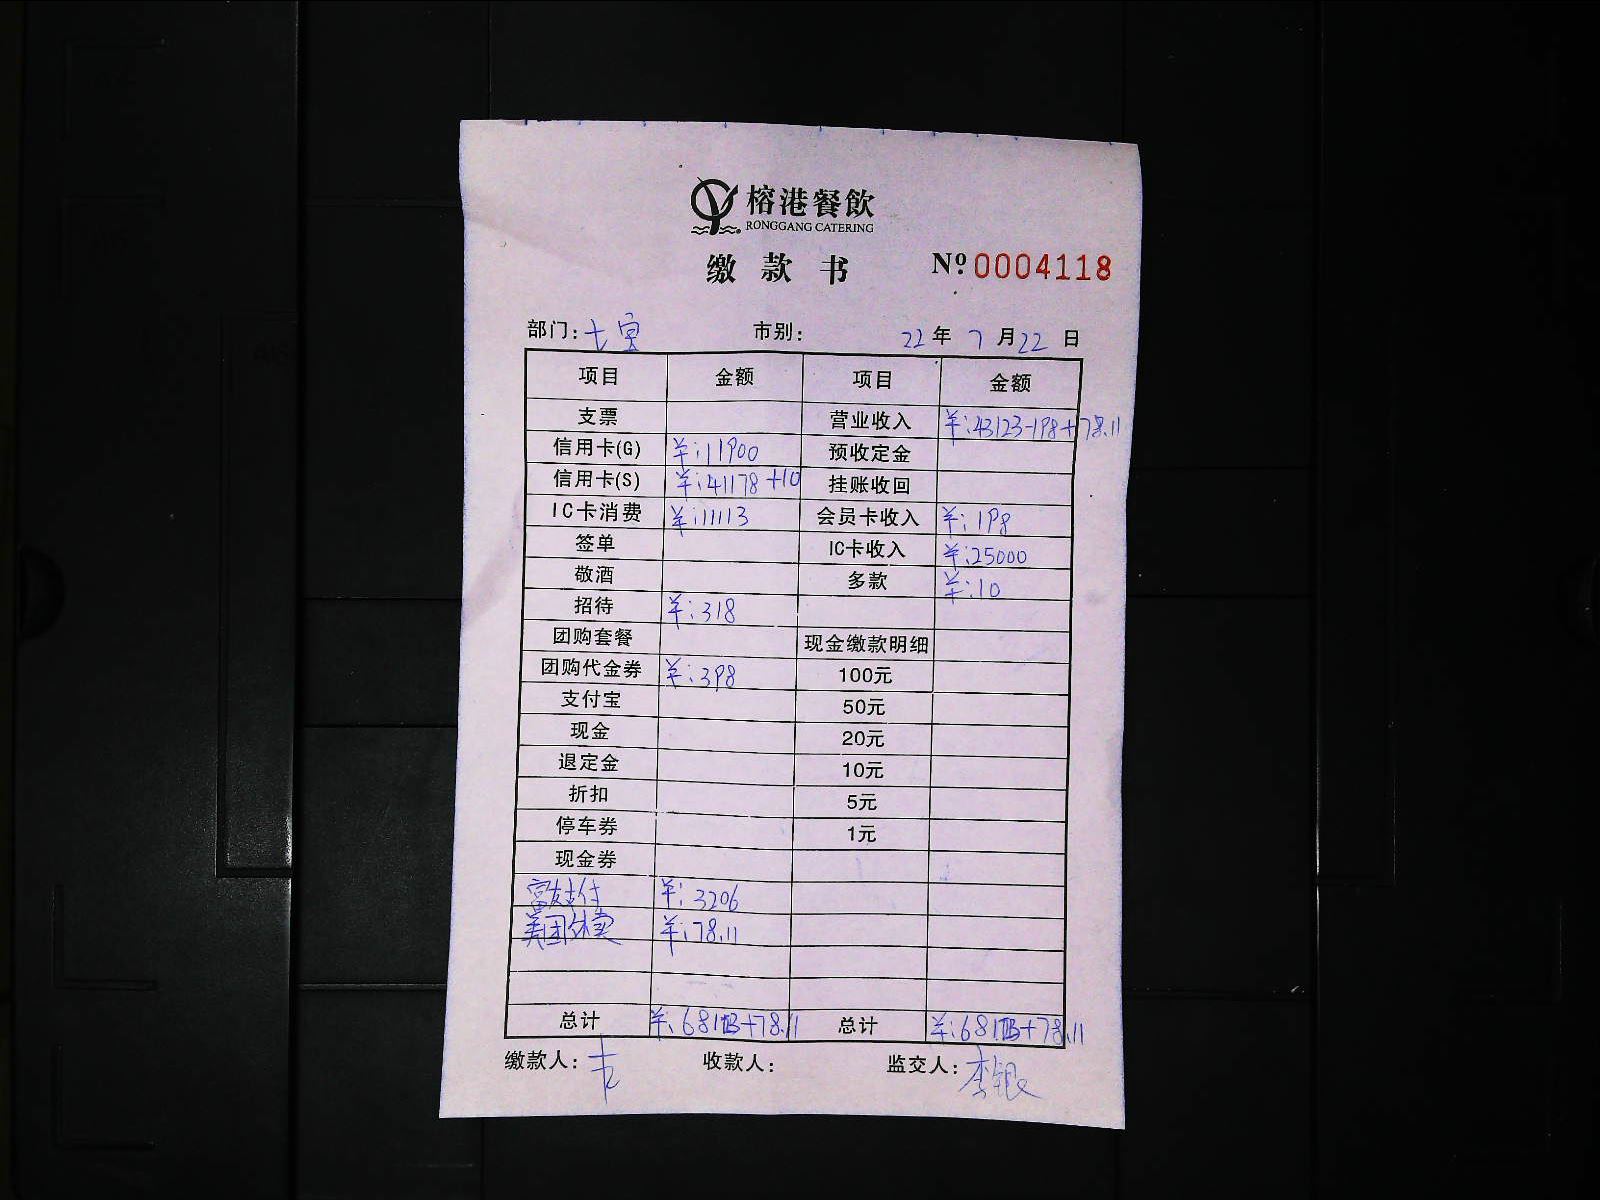 榕港餐飲
RONGGANG CATERING
缴款书 Nº 0004118
部门: 七宝 市别: 22年7月22日
项目 金额 项目 金额
支票 营业收入 ¥:43123-198+78.11
信用卡(G) ¥:11900 预收定金
信用卡(S) ¥:41178+10 挂账收回
IC卡消费 ¥:11113 会员卡收入 ¥:198
签单 IC卡收入 ¥:25000
敬酒 多款 ¥:10
招待 ¥:318
团购套餐 现金缴款明细
团购代金券 ¥:398 100元
支付宝 50元
现金 20元
退定金 10元
折扣 5元
停车券 1元
现金券
富友支付 ¥:3206
美团外卖 ¥:78.11
总计 +78.11 总计 +78.11
缴款人: 收款人: 监交人: 李银